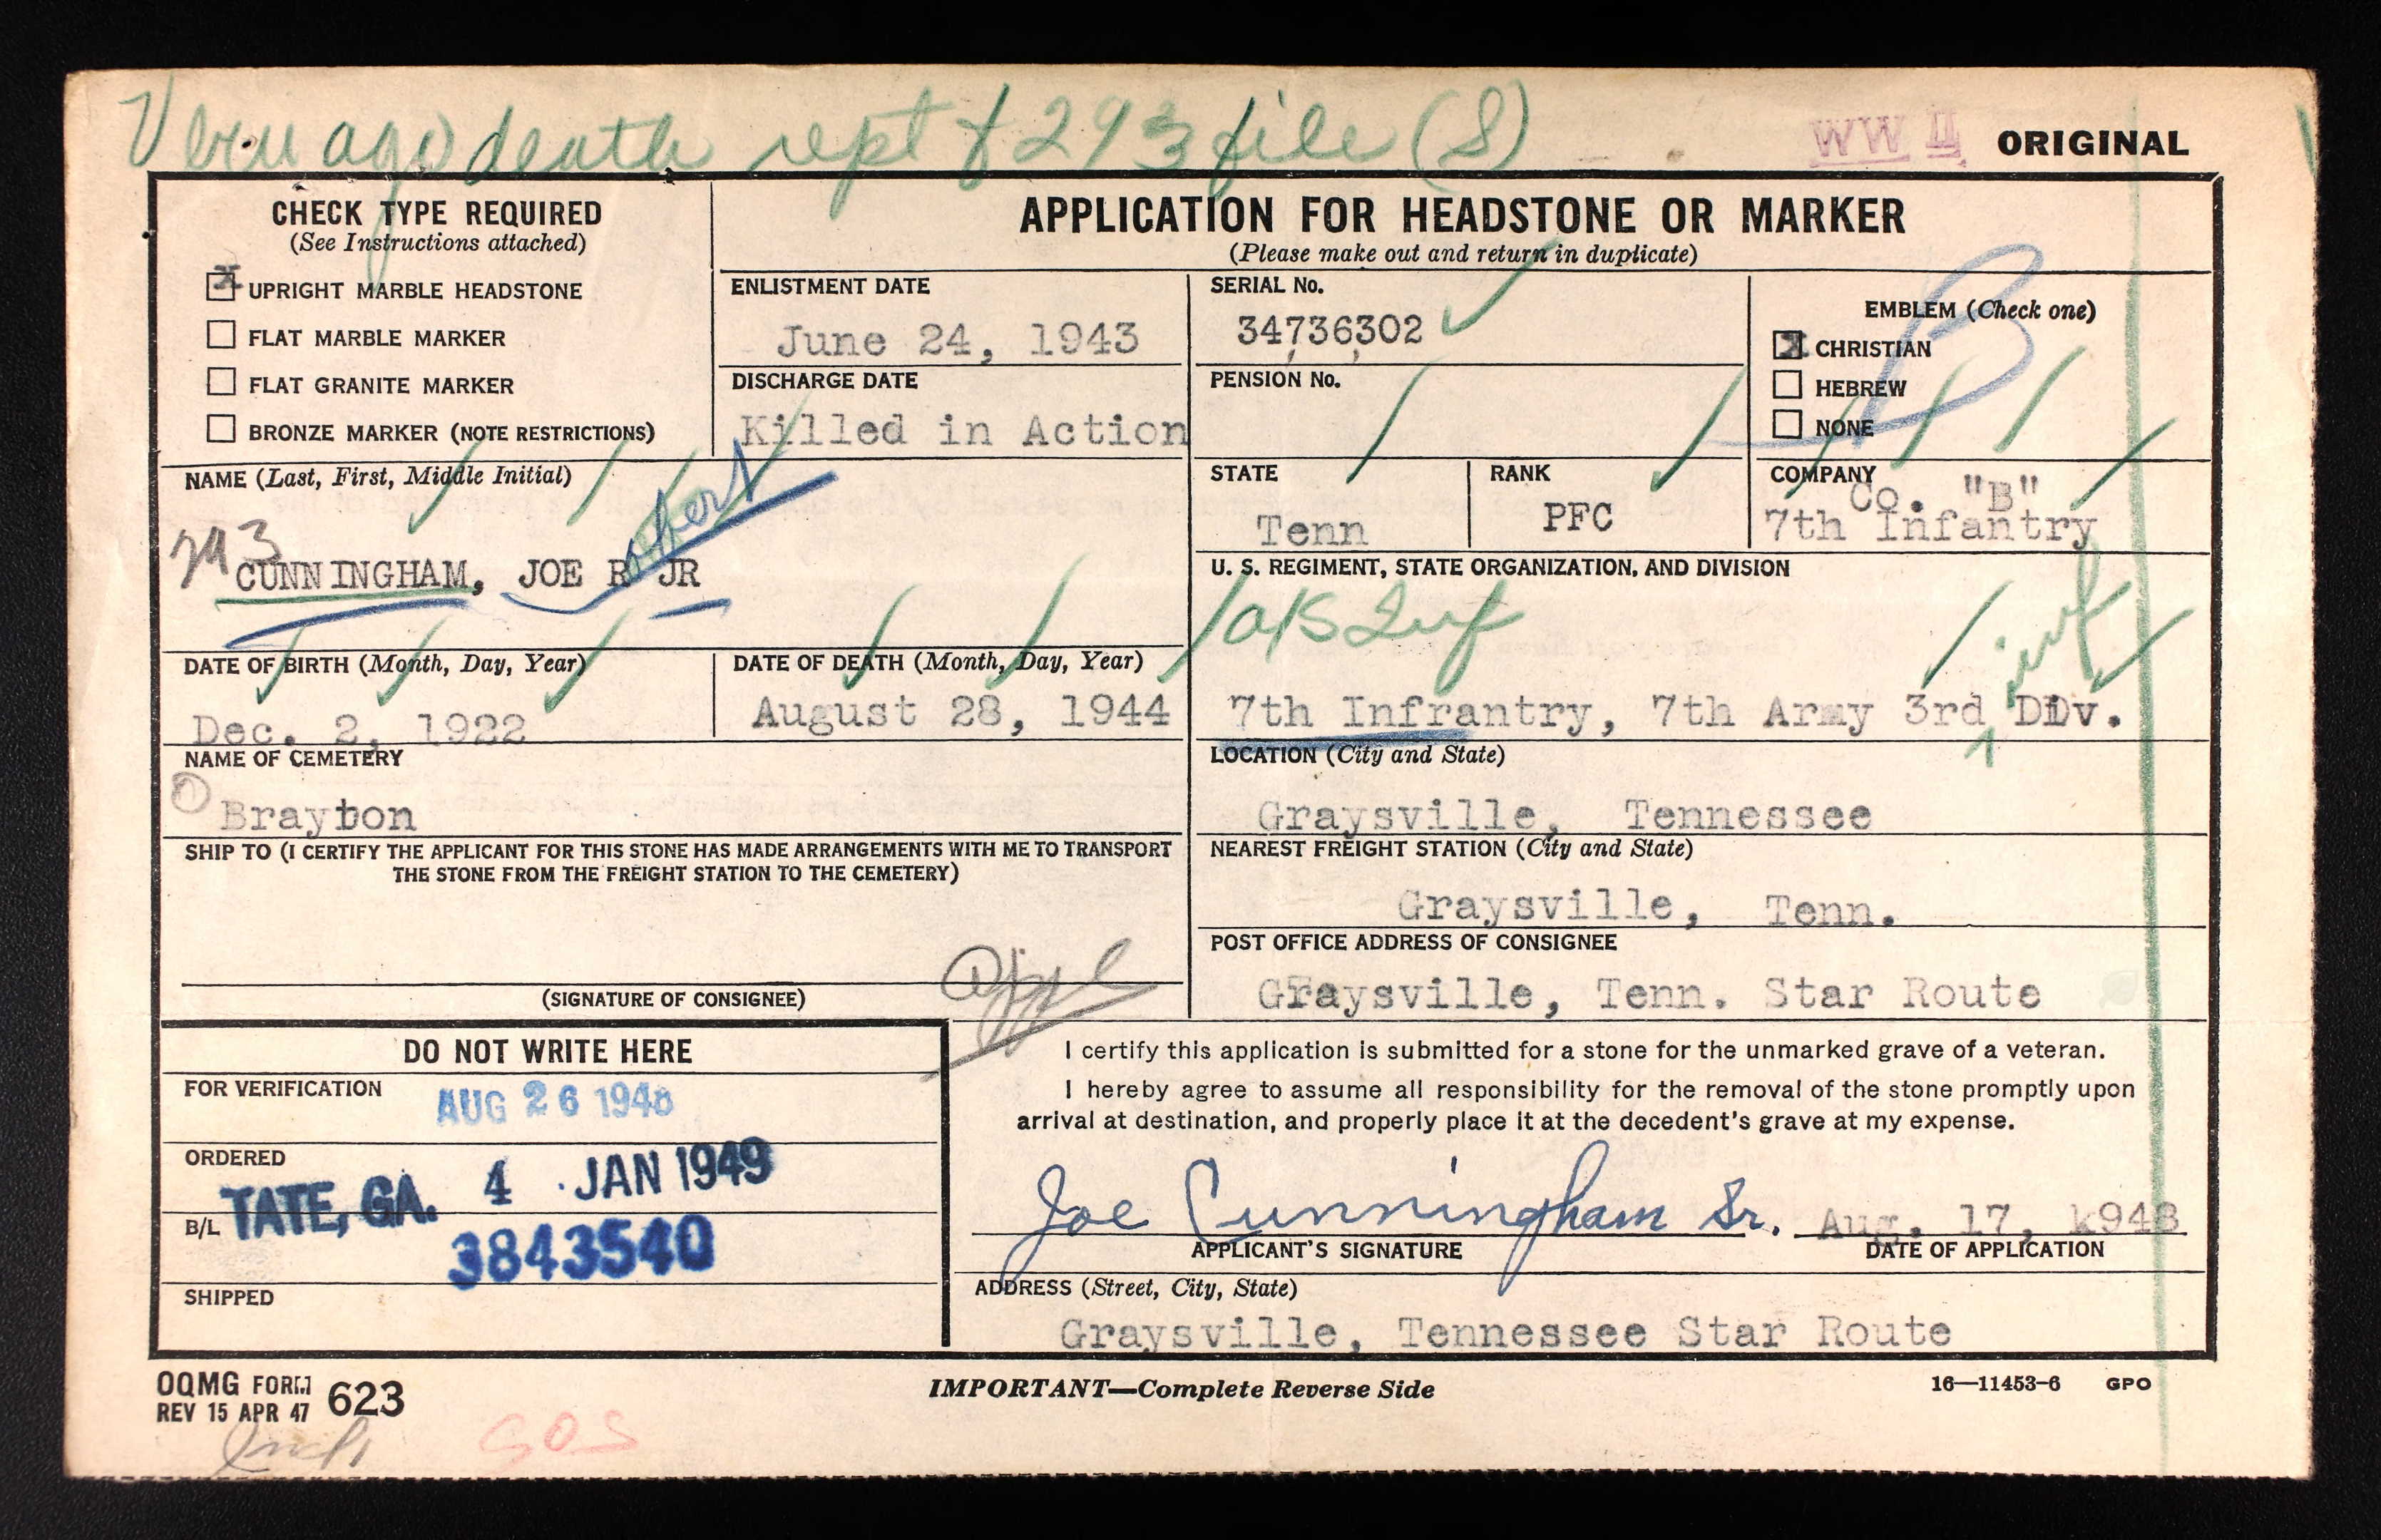 Veru ago death rept & 293 file (S)
WW II ORIGINAL
CHECK TYPE REQUIRED
(See Instructions attached)
X UPRIGHT MARBLE HEADSTONE
FLAT MARBLE MARKER
FLAT GRANITE MARKER
BRONZE MARKER (NOTE RESTRICTIONS)
APPLICATION FOR HEADSTONE OR MARKER
(Please make out and return in duplicate)
ENLISTMENT DATE
June 24, 1943
DISCHARGE DATE
Killed in Action
SERIAL No.
34,736,302
PENSION No.
EMBLEM (Check one)
X CHRISTIAN
HEBREW
NONE
B
NAME (Last, First, Middle Initial)
293
CUNNINGHAM, JOE R JR
obert
STATE
Tenn
RANK
PFC
COMPANY
Co. "B"
7th Infantry
U. S. REGIMENT, STATE ORGANIZATION, AND DIVISION
inf
7th Infrantry, 7th Army 3rd DIv.
DATE OF BIRTH (Month, Day, Year)
Dec. 2, 1922
DATE OF DEATH (Month, Day, Year)
August 28, 1944
NAME OF CEMETERY
Brayton
LOCATION (City and State)
Graysville, Tennessee
SHIP TO (I CERTIFY THE APPLICANT FOR THIS STONE HAS MADE ARRANGEMENTS WITH ME TO TRANSPORT
THE STONE FROM THE FREIGHT STATION TO THE CEMETERY)
(SIGNATURE OF CONSIGNEE)
Appl
NEAREST FREIGHT STATION (City and State)
Graysville, Tenn.
POST OFFICE ADDRESS OF CONSIGNEE
Graysville, Tenn. Star Route
DO NOT WRITE HERE
FOR VERIFICATION
AUG 26 1948
ORDERED
TATE, GA. 4 JAN 1949
B/L
3843540
SHIPPED
I certify this application is submitted for a stone for the unmarked grave of a veteran.
I hereby agree to assume all responsibility for the removal of the stone promptly upon
arrival at destination, and properly place it at the decedent's grave at my expense.
Joe Cunningham Sr. Aug. 17, k948
APPLICANT'S SIGNATURE DATE OF APPLICATION
ADDRESS (Street, City, State)
Graysville, Tennessee Star Route
OQMG FORM 623
REV 15 APR 47
IMPORTANT—Complete Reverse Side
16—11453-6 GPO
SOS